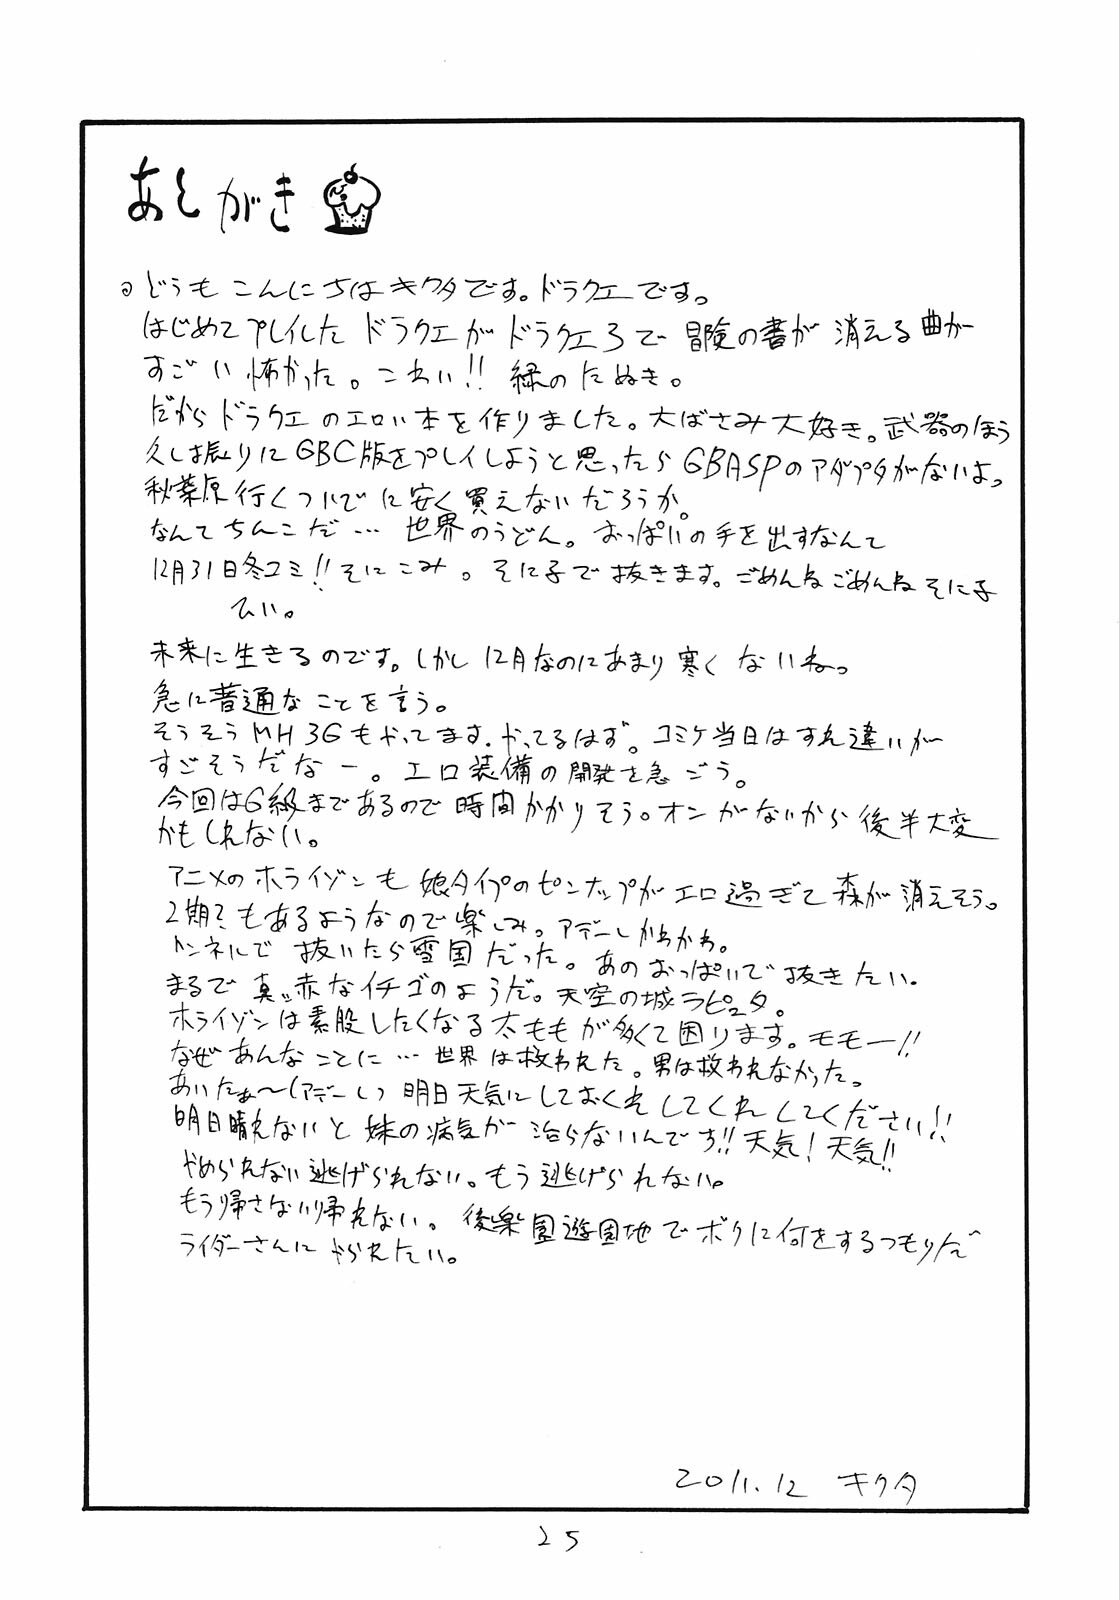 あとがき
どうもこんにちはキクタです。ドラクエです。
はじめてプレイしたドラクエがドラクエ3で冒険の書が消える曲が
すごい怖かった。こわい!!緑のたぬき。
だからドラクエのエロい本を作りました。大ばさみ大好き。武器のほう
久し振りにGBC版をプレイしようと思ったらGBASPのアダプタがないよっ
秋葉原行くついでに安く買えないだろうか。
なんてちんこだ…世界のうどん。おっぱいの手を出すなんて
12月31日冬コミ!!そにこみ。そに子で抜きます。ごめんねごめんねそに子
ひい。
未来に生きるのです。しかし12月なのにあまり寒くないねっ
急に普通なことを言う。
そうそうMH3Gもやってます。やってるはず。コミケ当日はすれ違いが
すごそうだなー。エロ装備の開発を急ごう。
今回はG級まであるので時間かかりそう。オンがないから後半大変
かもしれない。
アニメのホライゾンも娘タイプのピンナップがエロ過ぎて森が消えそう。
2期?もあるようなので楽しみ。アデーレかわかわ。
トンネルで抜いたら雪国だった。あのおっぱいで抜きたい。
まるで真ッ赤なイチゴのようだ。天空の城ラピュタ。
ホライゾンは素股したくなる太ももが多くて困ります。モモー!!
なぜあんなことに…世界は救われた。男は救われなかった。
あいたぁ〜(アデーレ)明日天気にしておくれしてくれしてください!!
明日晴れないと妹の病気が治らないんです!!天気!天気!!
やめられない逃げられない。もう逃げられない。
もう帰さない帰れない。後楽園遊園地でボクに何をするつもりだ
ライダーさんにやられたい。
2011.12 キクタ
25